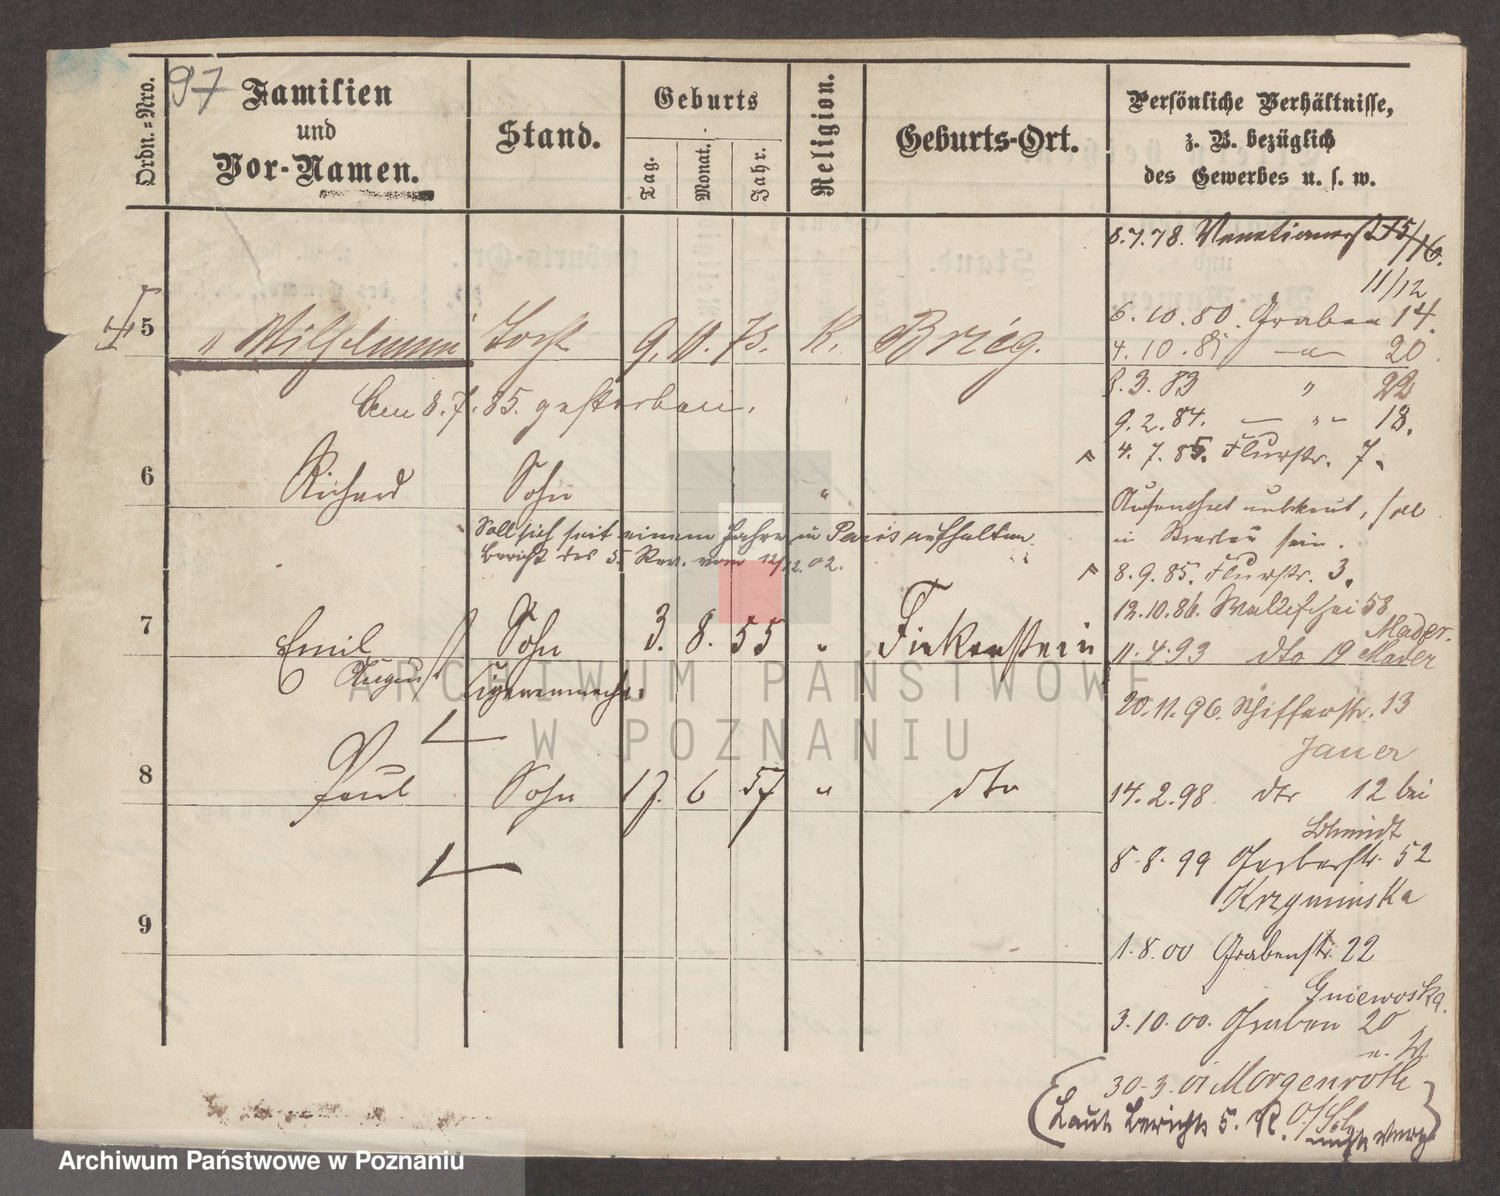 97
Ordn.=Nro.
Familien
und
Vor-Namen.
Stand.
Geburts
Tag.
Monat.
Jahr.
Religion.
Geburts-Ort.
Persönliche Verhältnisse,
z. B. bezüglich
des Gewerbes u. s. w.
5 " Wilhelmine 9. 11. 73. K. Brieg.
8.7.85. gestorben.
6 Richard Sohn "
Soll sich seit einem Jahre in Paris aufhalten.
Bericht des 5. Rev. vom 12/12.02.
7 Emil Sohn 3. 8. 55 " Finkenstein
August
8 Paul Sohn 17. 6 57 " dto
9
8.7.78. Venetianerst 15/16.
11/12
6.10.80. Graben 14.
4.10.81 -"- 20
8.3.83 " 22
9.2.84. -"- 18.
4.7.85. Flurstr. 7.
Aufenthalt unbekannt, soll
in Breslau sein.
8.9.85. Flurstr. 3.
12.10.86. Wallischei 58
Mader.
11.4.93 dto 19 Mader
20.11.96. Schifferstr. 13
Jauer
14.2.98 dto 12 bei
Schmidt
8.8.99 Gerberstr. 52
Krzyminska
1.8.00 Grabenstr. 22
Gniewoska.
3.10.00. Graben 20
30.3.01 Morgenroth
O/Sch
Laut Bericht 5. R.
ARCHIWUM PAŃSTWOWE
W POZNANIU
Archiwum Państwowe w Poznaniu